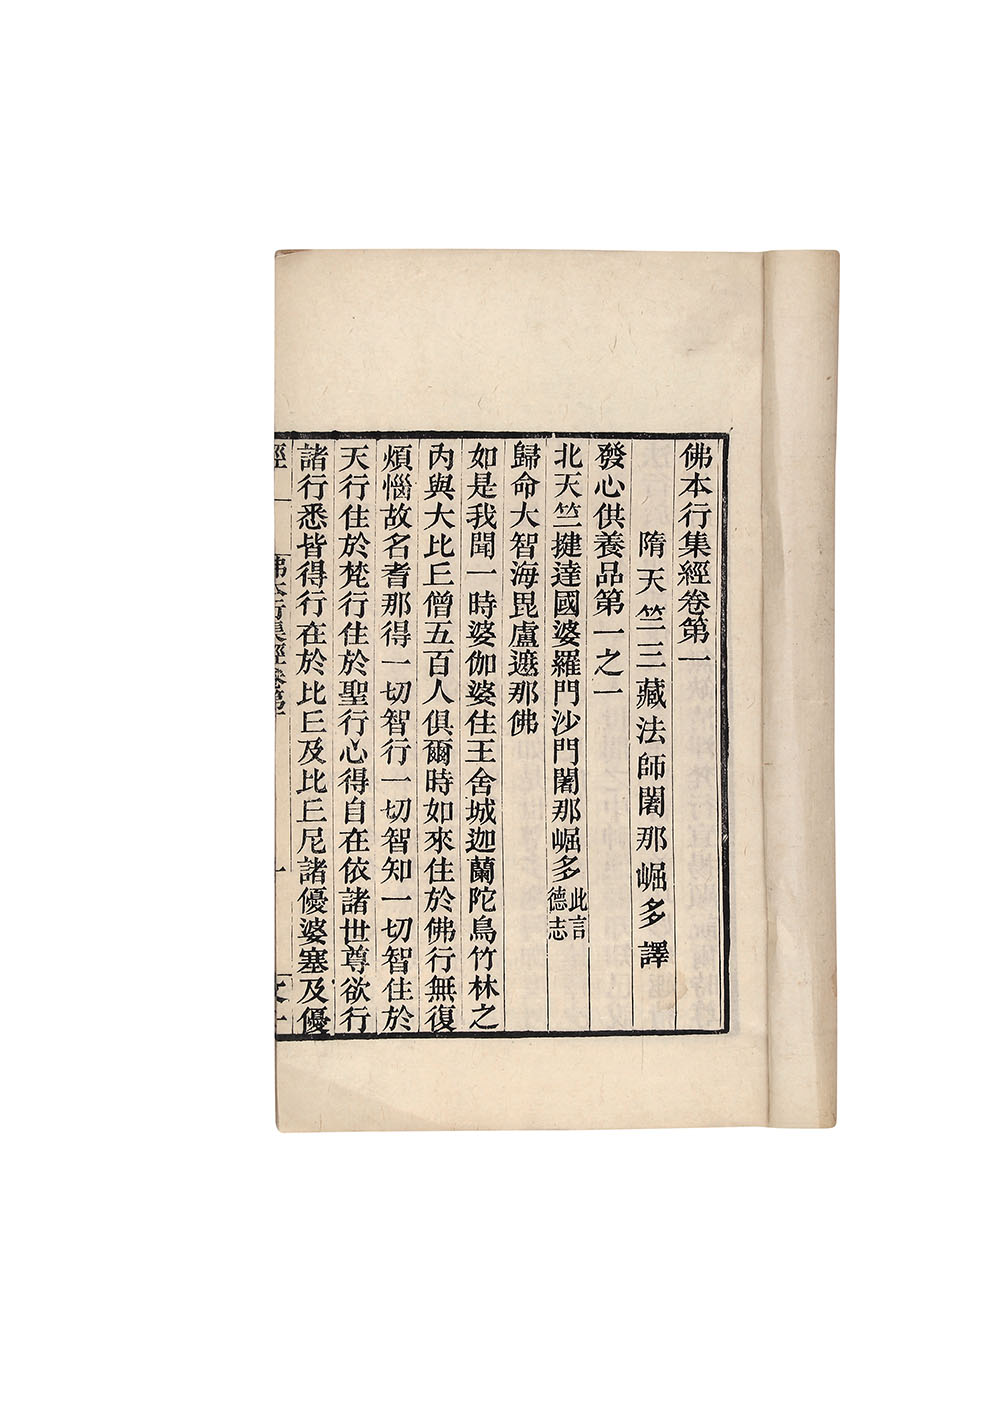 佛本行集經卷第一
隋天竺三藏法師闍那崛多譯
發心供養品第一之一
北天竺揵達國婆羅門沙門闍那崛多此言德志
歸命大智海毘盧遮那佛
如是我聞一時婆伽婆住王舍城迦蘭陀鳥竹林之
內與大比丘僧五百人俱爾時如來住於佛行無復
煩惱故名耆那得一切智行一切智知一切智住於
天行住於梵行住於聖行心得自在依諸世尊欲行
諸行悉皆得行在於比丘及比丘尼諸優婆塞及優
經 佛本行集經卷第一